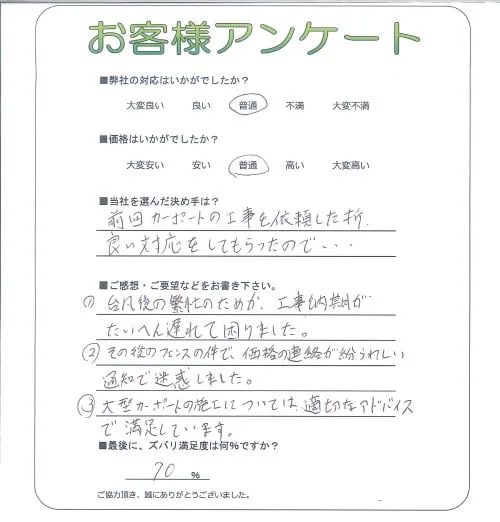 お客様アンケート
■弊社の対応はいかがでしたか?
大変良い 良い 普通 不満 大変不満
■価格はいかがでしたか?
大変安い 安い 普通 高い 大変高い
■当社を選んだ決め手は?
前回カーポートの工事を依頼した折、
良い対応をしてもらったので・・・
■ご感想・ご要望などをお書き下さい。
① 台風後の繁忙のためか、工事納期が
たいへん遅れて困りました。
② その後のフェンスの件で、価格の連絡が紛らわしい
通知で迷惑しました。
③ 大型カーポートの施工については、適切なアドバイス
で満足しています。
■最後に、ズバリ満足度は何%ですか?
70 %
ご協力頂き、誠にありがとうございました。